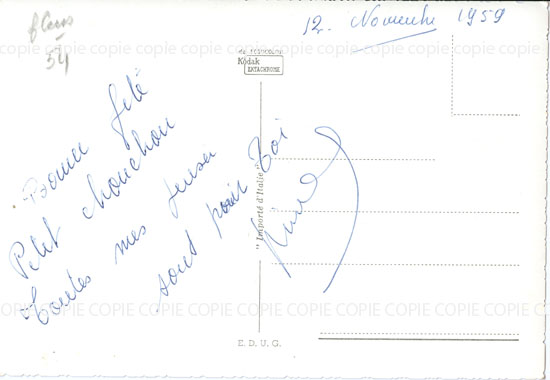 fleurs
54
12. Novembre 1959
Kodak
EKTACHROME
Bonne fête
Petit chouchou
toutes mes pensées
sont pour toi
" Importé d'Italie "
E. D. U. G.
COPIE COPIE COPIE COPIE COPIE COPIE COPIE COPIE COPIE COPIE COPIE COPIE
COPIE COPIE COPIE COPIE COPIE COPIE COPIE COPIE COPIE COPIE COPIE COPIE